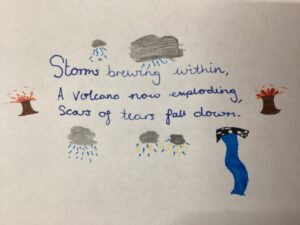 Storms brewing within,
A volcano now exploding,
Scars of tears fall down.